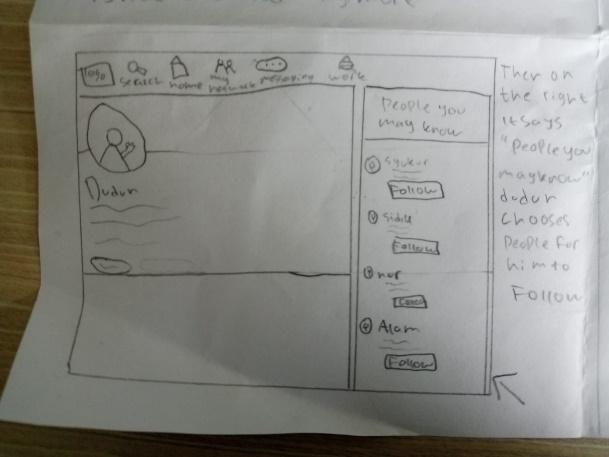 logo
search
home
my
network
messaging
work
People you
may know
Syukur
Follow
Sidik
Follow
nor
Follow
Alam
Follow
Dudun
Then on
the right
it says
"People you
may know"
dudun
chooses
People for
him to
Follow